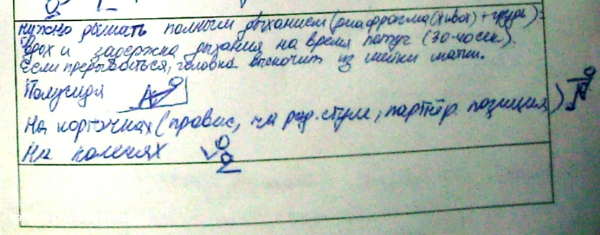 Нужно дышать полным дыханием (диафрагма (живот) + грудь):
Вдох и задержка дыхания на время потуг (30-40сек).
Если прерываться, головка выскочит из шейки матки.
Полусидя
На корточках (правис, на род. стуле, партнёр. позиция)
На коленях